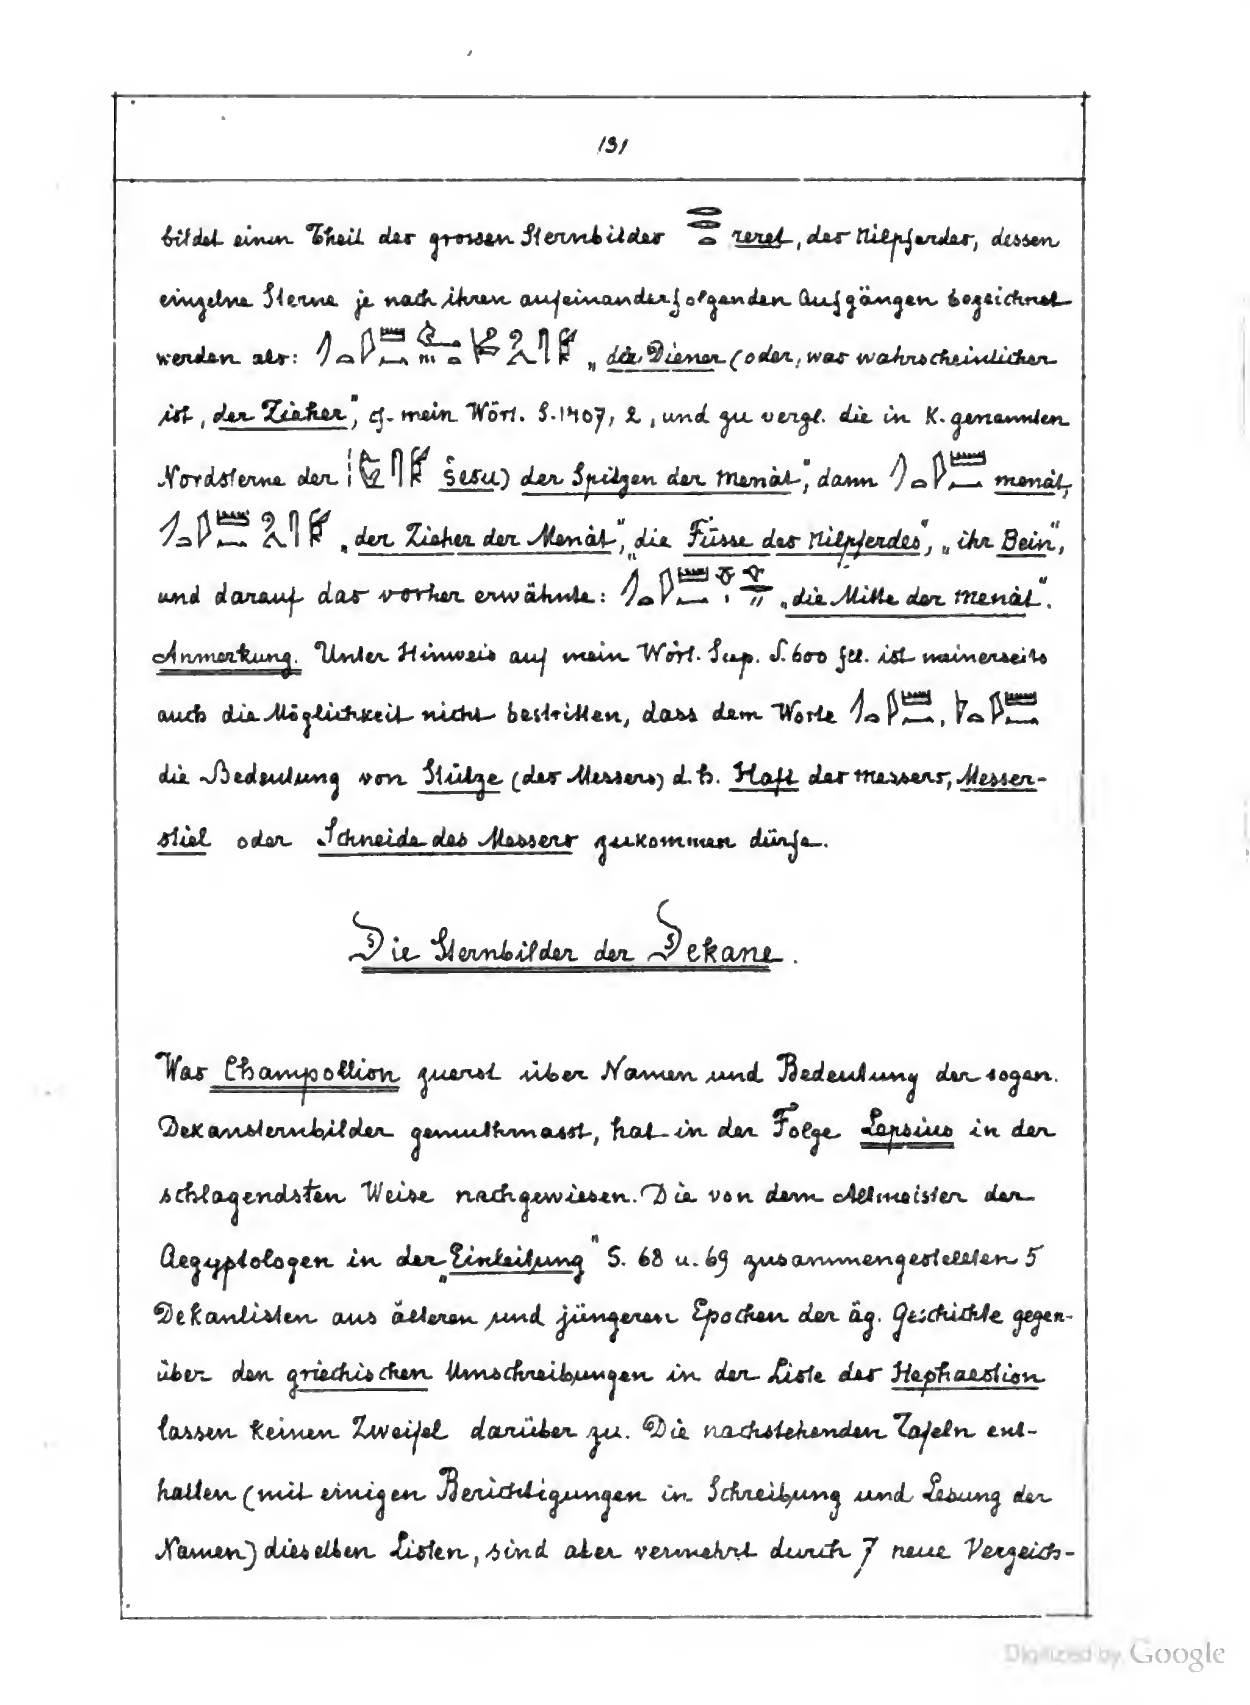 131
bildet einen Theil des grossen Sternbildes reret, des Nilpferdes, dessen
einzelne Sterne je nach ihren aufeinanderfolgenden Aufgängen bezeichnet
werden als: „die Diener (oder, was wahrscheinlicher
ist, der Zieher", cf. mein Wört. S. 1407, 2, und zu vergl. die in K. genannten
Nordsterne der šesu) der Spitzen der menȧt", dann menȧt,
„der Zieher der Menȧt", „die Füsse des Nilpferdes", „ihr Bein",
und darauf das vorher erwähnte: „die Mitte der menȧt".
Anmerkung. Unter Hinweis auf mein Wört. Sup. S. 600 fll. ist meinerseits
auch die Möglichkeit nicht bestritten, dass dem Worte ,
die Bedeutung von Stütze (des Messers) d. h. Heft des messers, Messer-
stiel oder Schneide des Messers zukommen dürfe.
Die Sternbilder der Dekane.
Was Champollion zuerst über Namen und Bedeutung der sogen.
Dekansternbilder gemuthmasst, hat in der Folge Lepsius in der
schlagendsten Weise nachgewiesen. Die von dem Altmeister der
Aegyptologen in der „Einleitung" S. 68 u. 69 zusammengestellten 5
Dekanlisten aus älteren und jüngeren Epochen der äg. Geschichte gegen-
über den griechischen Umschreibungen in der Liste des Hephaestion
lassen keinen Zweifel darüber zu. Die nachstehenden Tafeln ent-
halten (mit einigen Berichtigungen in Schreibung und Lesung der
Namen) dieselben Listen, sind aber vermehrt durch 7 neue Verzeich-
Digitized by Google